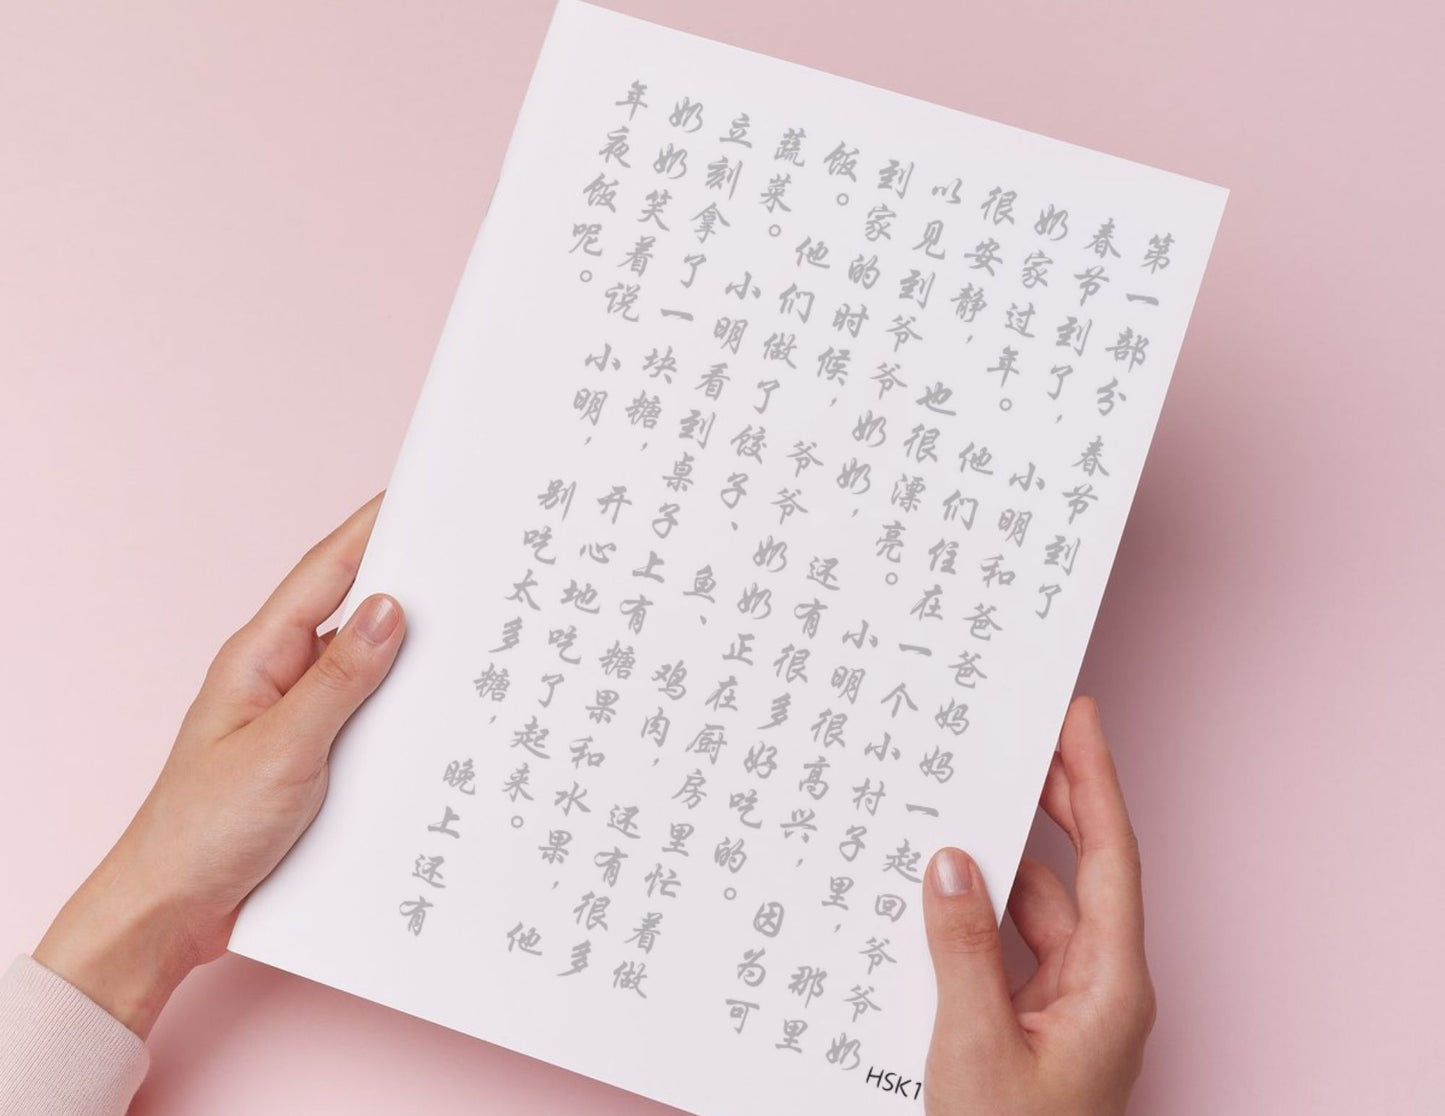 第一部分 春节到了
春节到了，小明和爸爸妈妈一起回爷爷奶
奶家过年。他们住在一个小村子里，那里
很安静，也很漂亮。小明很高兴，因为可
以见到爷爷奶奶，还有很多好吃的。
到家的时候，爷爷奶奶正在厨房里忙着做
饭。他们做了饺子、鱼、鸡肉，还有很多
蔬菜。小明看到桌子上有糖果和水果，他
立刻拿了一块糖，开心地吃了起来。
奶奶笑着说 小明，别吃太多糖，晚上还有
年夜饭呢。
HSK1